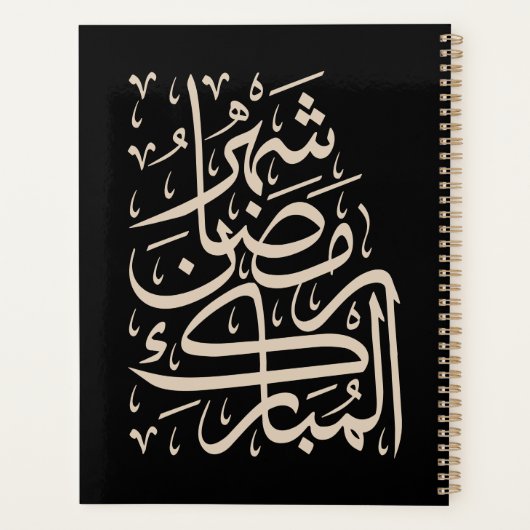 شَهْرُ
رَمَضَان
المُبَارَك